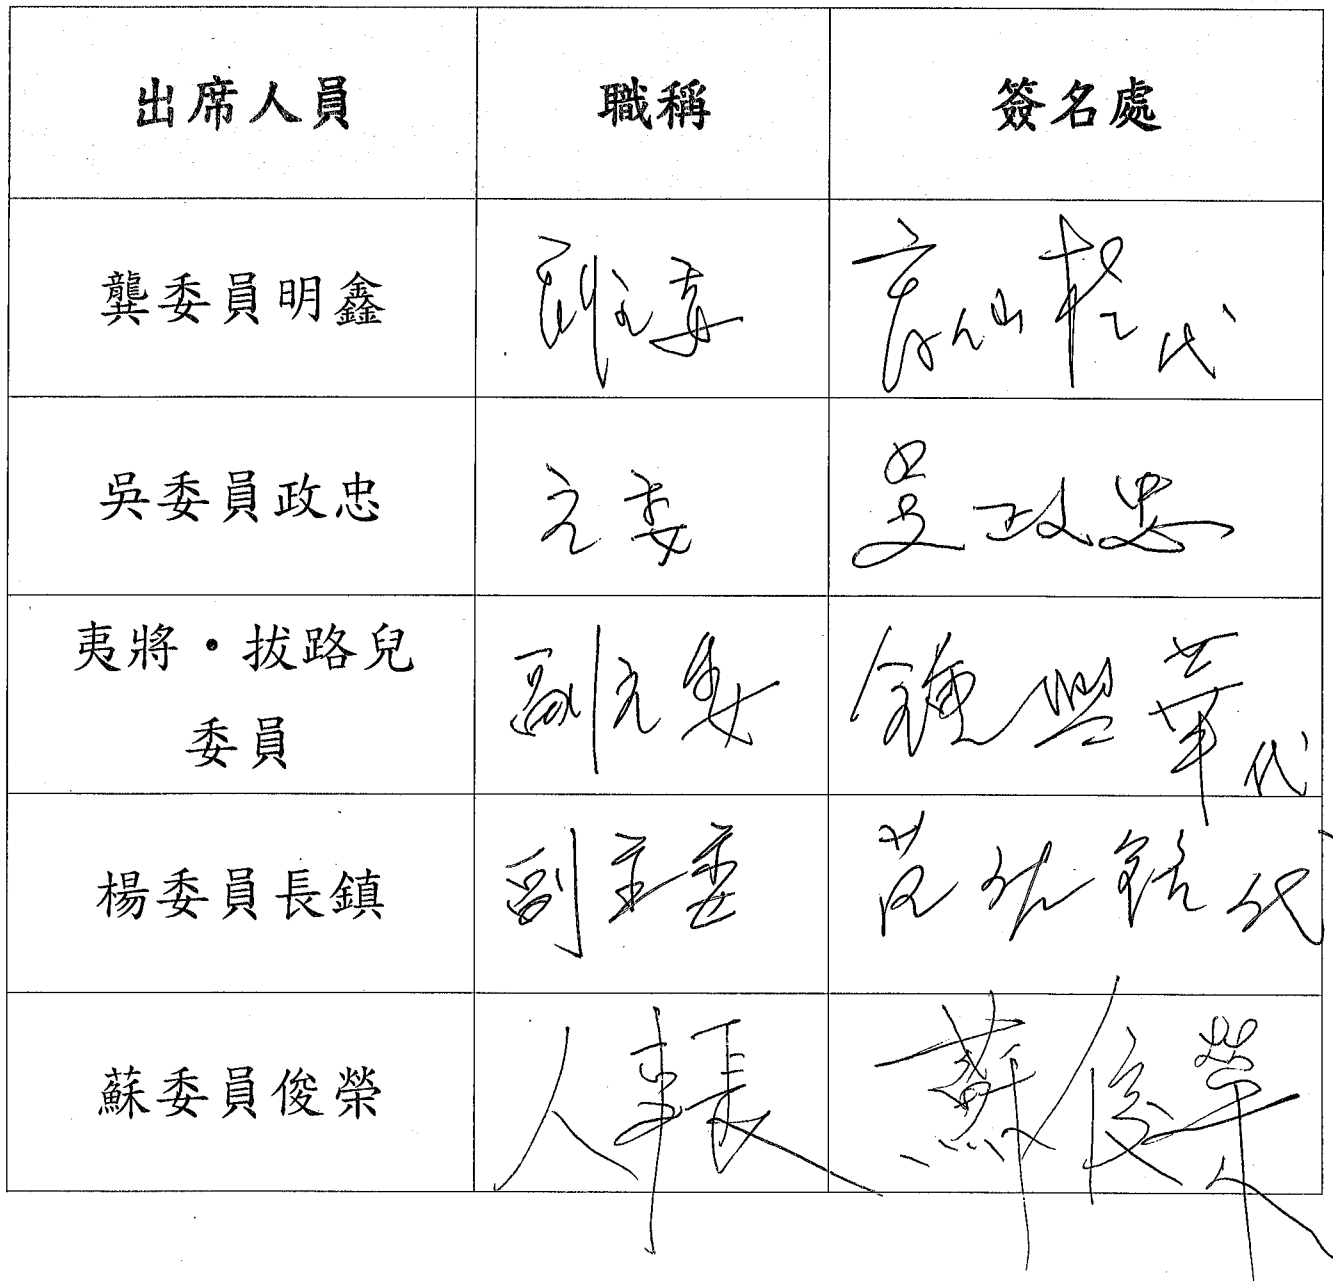 出席人員 職稱 簽名處
龔委員明鑫 副主委 高仙桂代
吳委員政忠 主委 吳政忠
夷將·拔路兒
委員 副主委 鍾興華代
楊委員長鎮 副主委 范佐銘代
蘇委員俊榮 人事長 蘇俊榮